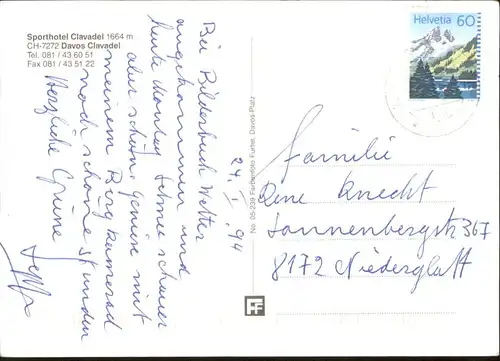 Sporthotel Clavadel 1664 m
CH-7272 Davos Clavadel
Tel. 081 / 43 60 51
Fax 081 / 43 51 22
24. I. 94
Bei Bilderbuch Wetter
angekommen und
heute Montag Schneeschauer
aber schön. Geniese mit
meinem Bergkamerad
noch schöne Stunden
Herzliche Grüsse
No. 05-239 Furter, Davos-Platz
FF
Helvetia 60
Familie
Rene Knecht
Sonnenbergstr 367
8172 Niederglatt